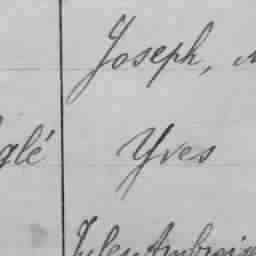 Joseph,
glé Yves
Jules Ambroise